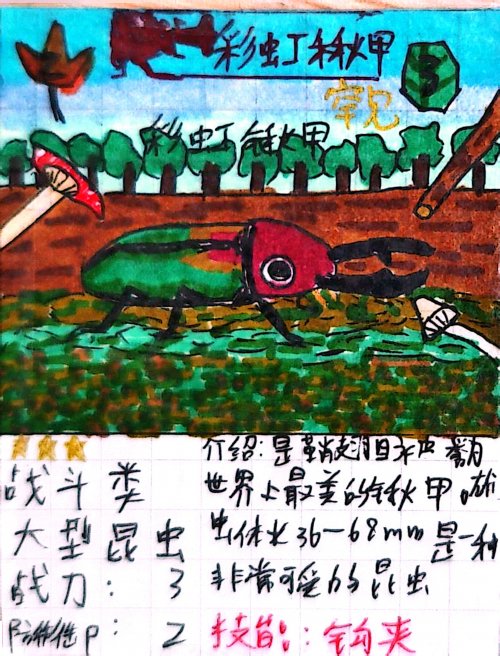 彩虹锹甲
3
常见
彩虹锹甲
介绍:是鞘翅目永 誉为
世界上最美的锹甲。雄
虫体长36—68mm是一种
非常可爱的昆虫
战斗类
大型昆虫
战力:3
p:2
技能:钩夹